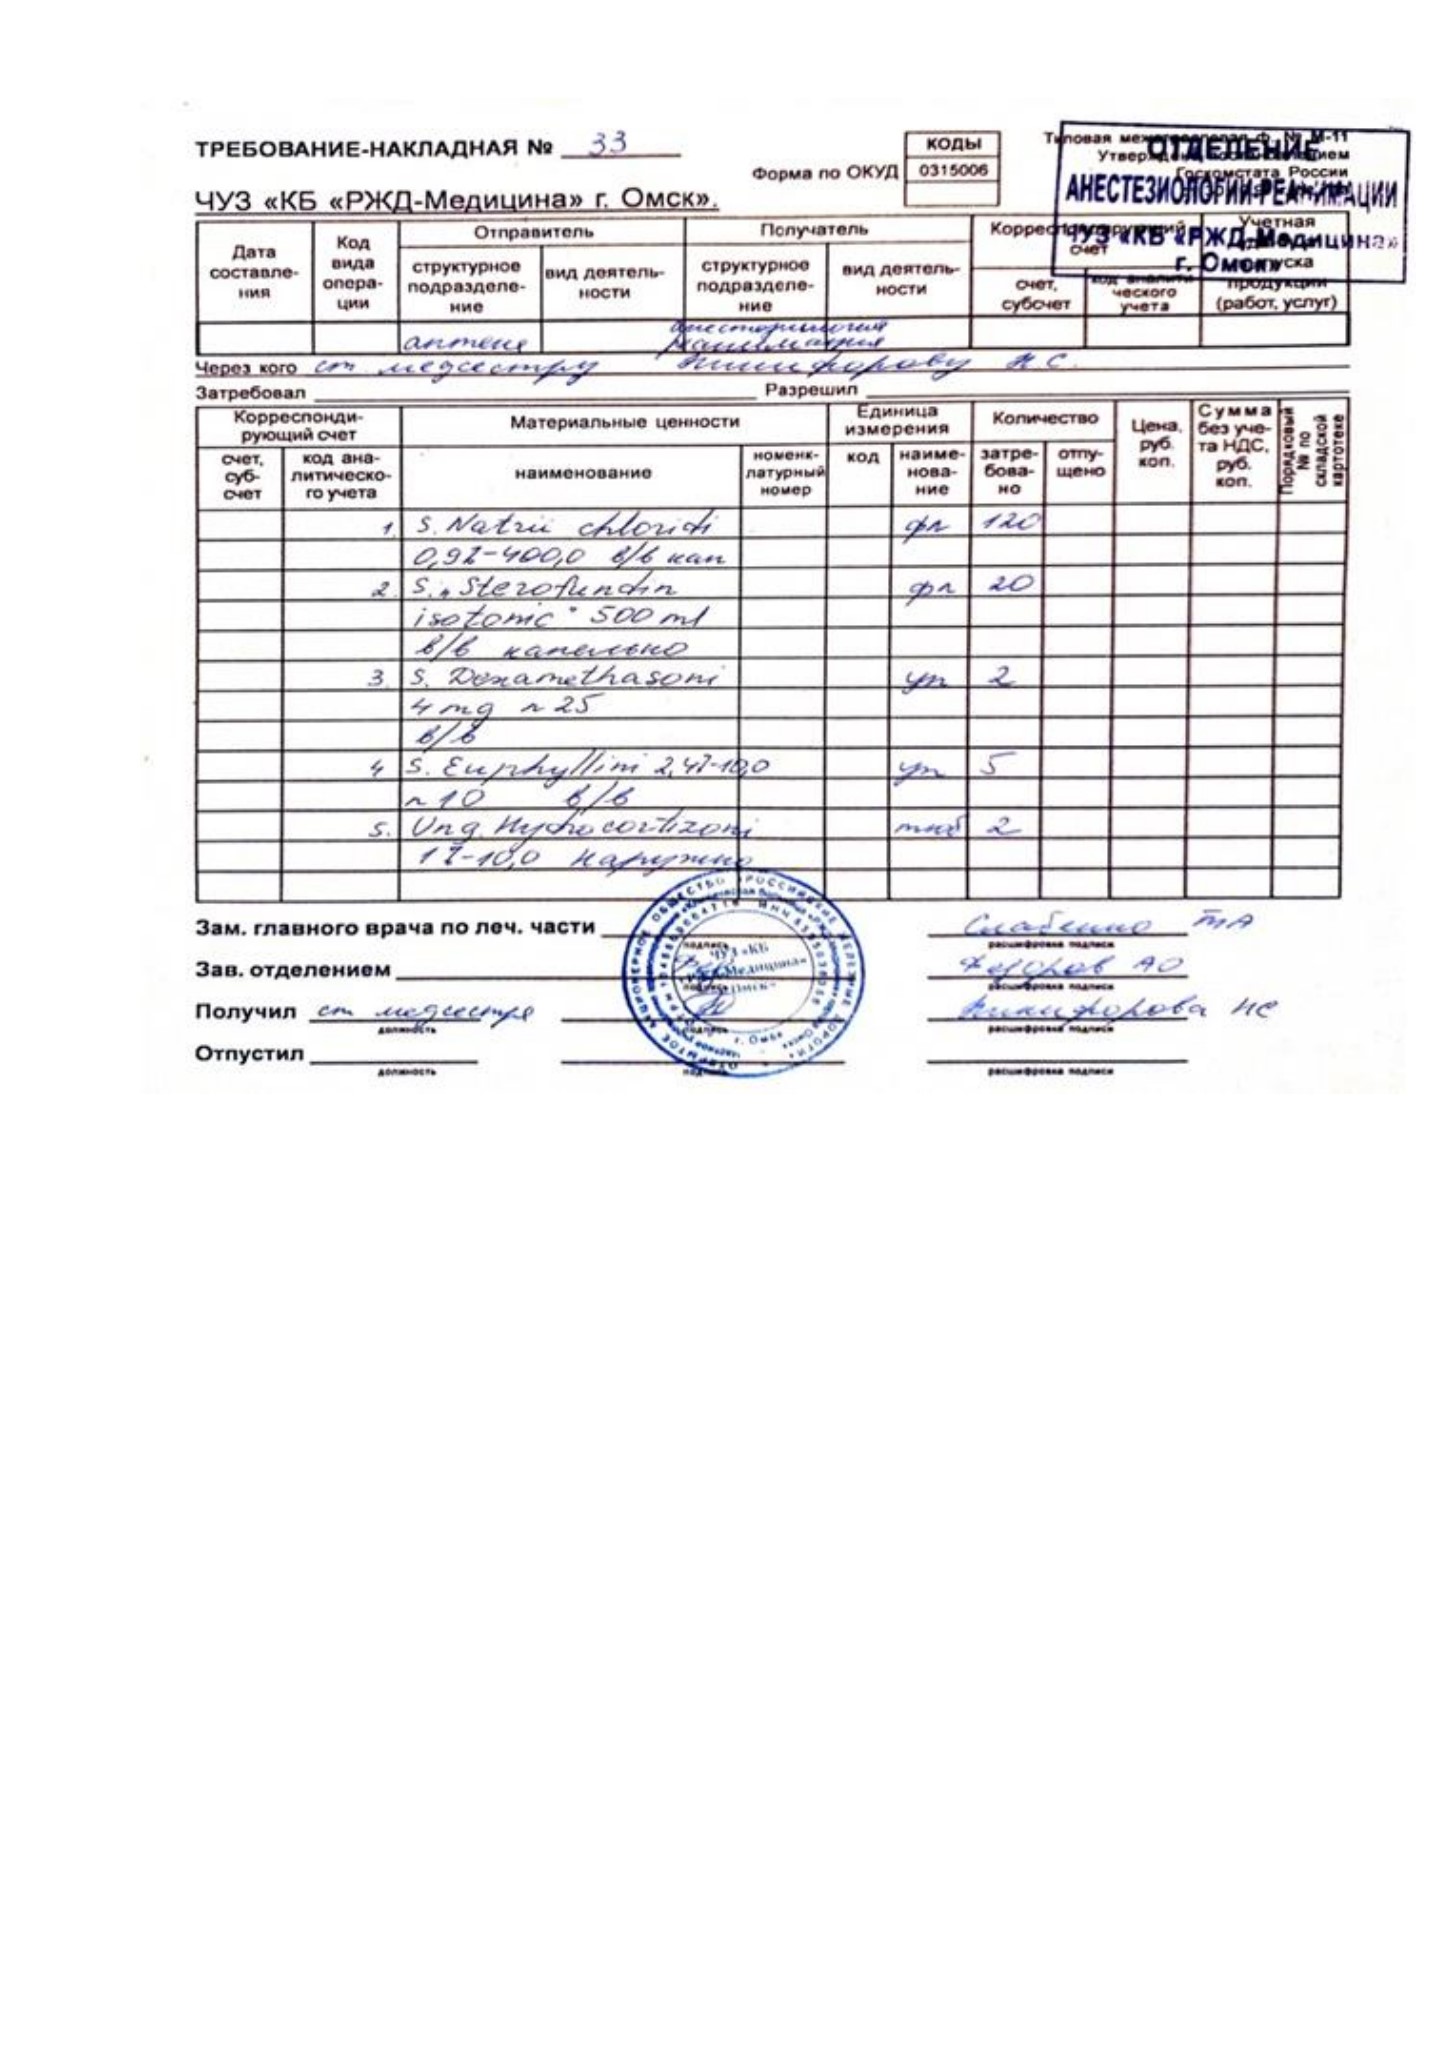 ТРЕБОВАНИЕ-НАКЛАДНАЯ № 33
КОДЫ
Форма по ОКУД 0315006
Типовая межотраслевая ф. № М-11
Госкомстата России
ОТДЕЛЕНИЕ
АНЕСТЕЗИОЛОГИИ-РЕАНИМАЦИИ
ЧУЗ «КБ «РЖД-Медицина»
г. Омск»
ЧУЗ «КБ «РЖД-Медицина» г. Омск».
Дата составле-ния
Код вида опера-ции
Отправитель
структурное подразделе-ние
вид деятель-ности
Получатель
структурное подразделе-ние
вид деятель-ности
Корреспондирующий счет
счет, субсчет
код аналити-ческого учета
Учетная
продукции (работ, услуг)
аптека
анестезиология
реанимация
Через кого ст медсестру Никифорову Н.С.
Затребовал Разрешил
Корреспонди-рующий счет
счет, суб-счет
код ана-литическо-го учета
Материальные ценности
наименование
номенк-латурный номер
Единица измерения
код
наиме-нова-ние
Количество
затре-бова-но
отпу-щено
Цена, руб. коп.
Сумма без уче-та НДС, руб. коп.
Порядковый № по складской картотеке
1. S. Natrii chloridi фл 120
0,9%-400,0 в/в кап
2. S. „Sterofundin фл 20
isotonic" 500 ml
в/в капельно
3. S. Dexamethasoni уп 2
4 mg n 25
в/в
4 S. Euphyllini 2,4%-10,0 уп 5
n 10 в/в
5. Ung. Hydrocortizoni туб 2
1%-10,0 наружно
Зам. главного врача по леч. части
подпись
расшифровка подписи
Зав. отделением Федоров АО
подпись
расшифровка подписи
Получил ст медсестра Никифорова НС
должность
подпись
расшифровка подписи
Отпустил
должность
подпись
расшифровка подписи
ЧУЗ «КБ
«РЖД-Медицина»
г. Омск»